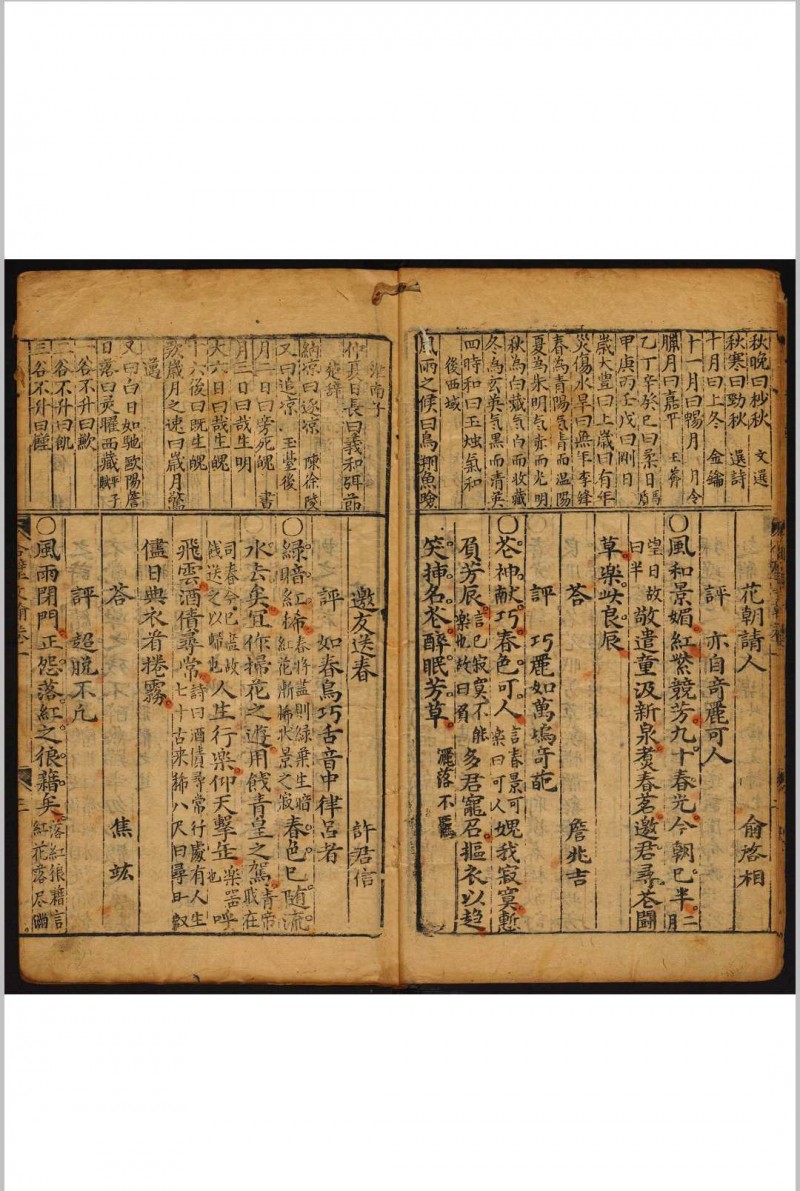 秋晚曰杪秋 文選
秋寒曰勁秋 選詩
十月曰上冬 金鑰
十一月曰暢月 月令
臘月曰嘉平 玉
乙丁辛癸巳曰柔日
甲庚丙壬戊曰剛日
歲大豐曰上歲曰有年
災傷水旱曰無年 李絳
春為青陽氣青而温陽
夏為朱明氣赤而光明
秋為白藏氣白而收藏
冬為玄英氣黑而清英
四時和曰玉燭氣和
後西域
風雨之候曰鳥翔魚噞
花朝請人 俞啓相
評 亦自奇麗可人
〇風和景媚紅紫競芳九十春光今朝已半二月
望日故曰半敬遣童汲新泉煑春茗邀君尋芲鬪
草樂此良辰
答 詹兆吉
評 巧麗如萬塢奇葩
〇芲神献巧春色可人言春景可樂曰可人媿我寂寞慙
負芳辰言已寂寞不能樂也故曰負多君寵召摳衣以趋
笑揷名芲醉眠芳草灑落不羈
淮南子
仲夏日長曰羲和弭節
楚辭
納凉曰逐凉 陳徐陵
又曰追凉 玉堂後
月一日曰旁死魄 書
月三日曰哉生明
大六日曰哉生魄
十六後曰既生魄
敘歲月之速曰歲月驚
邁
又曰白日如馳歐陽詹
日落曰灵曜西藏平子賦
一谷不升曰歉
二谷不升曰飢
三谷不升曰饉
邀友送春 許君信
評 如春鳥巧舌音中律吕者
〇綠暗紅稀春將盡則綠葉生暗園林紅花漸稀狀景之寂春色已随流
水去矣冝作掃花之遊用餞青皇之駕青帝職在
司春今已盡故餞送之以歸也人生行樂仰天擊缶樂器也呼
飛雲酒債尋常詩曰酒債尋常行處有人生七十古来稀八尺曰尋日叙
儘日典衣看捲霧
答 焦竑
評 超脱不凢
〇風雨閉門正怨落紅之狼藉矣落紅狼藉言紅花落尽